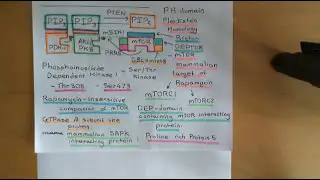 PTEN
PH domain
PIP3 PIP3 PIP2
Pleckstrin
Homology
mSIN1
Protein
PDK1 Akt PKB
mTOR
DEPTOR
PRR5
GβL/mLST8
mTOR
Phosphoinositide
Dependent Kinase 1
Ser/Thr
Kinase
mammalian
target of
Rapamycin
Thr308 Ser473
mTORC1
mTORC2
Rapamycin-insensitive
companion of mTOR
DEP-domain
containing mTOR interacting
protein
GTPase β subunit like
protein
mammalian SAPK
interacting protein 1
Proline rich Protein 5